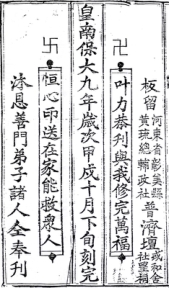 板留
河東省彰美縣
黃琉總輔政社
普濟壇
卍
叶力恭刊與我修完萬福
皇南保大九年歲次甲戌十月下旬刻完
卐
恒心印送在家能救衆人
沐恩善門弟子諸人仝奉刊